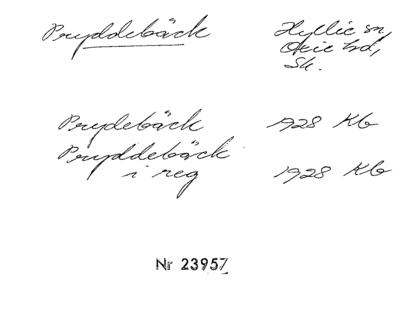 Pryddebäck Hyllie sn,
Oxie hd,
Sk.
Prydebäck 1928 Kb
Pryddebäck
i reg 1928 Kb
Nr 23957